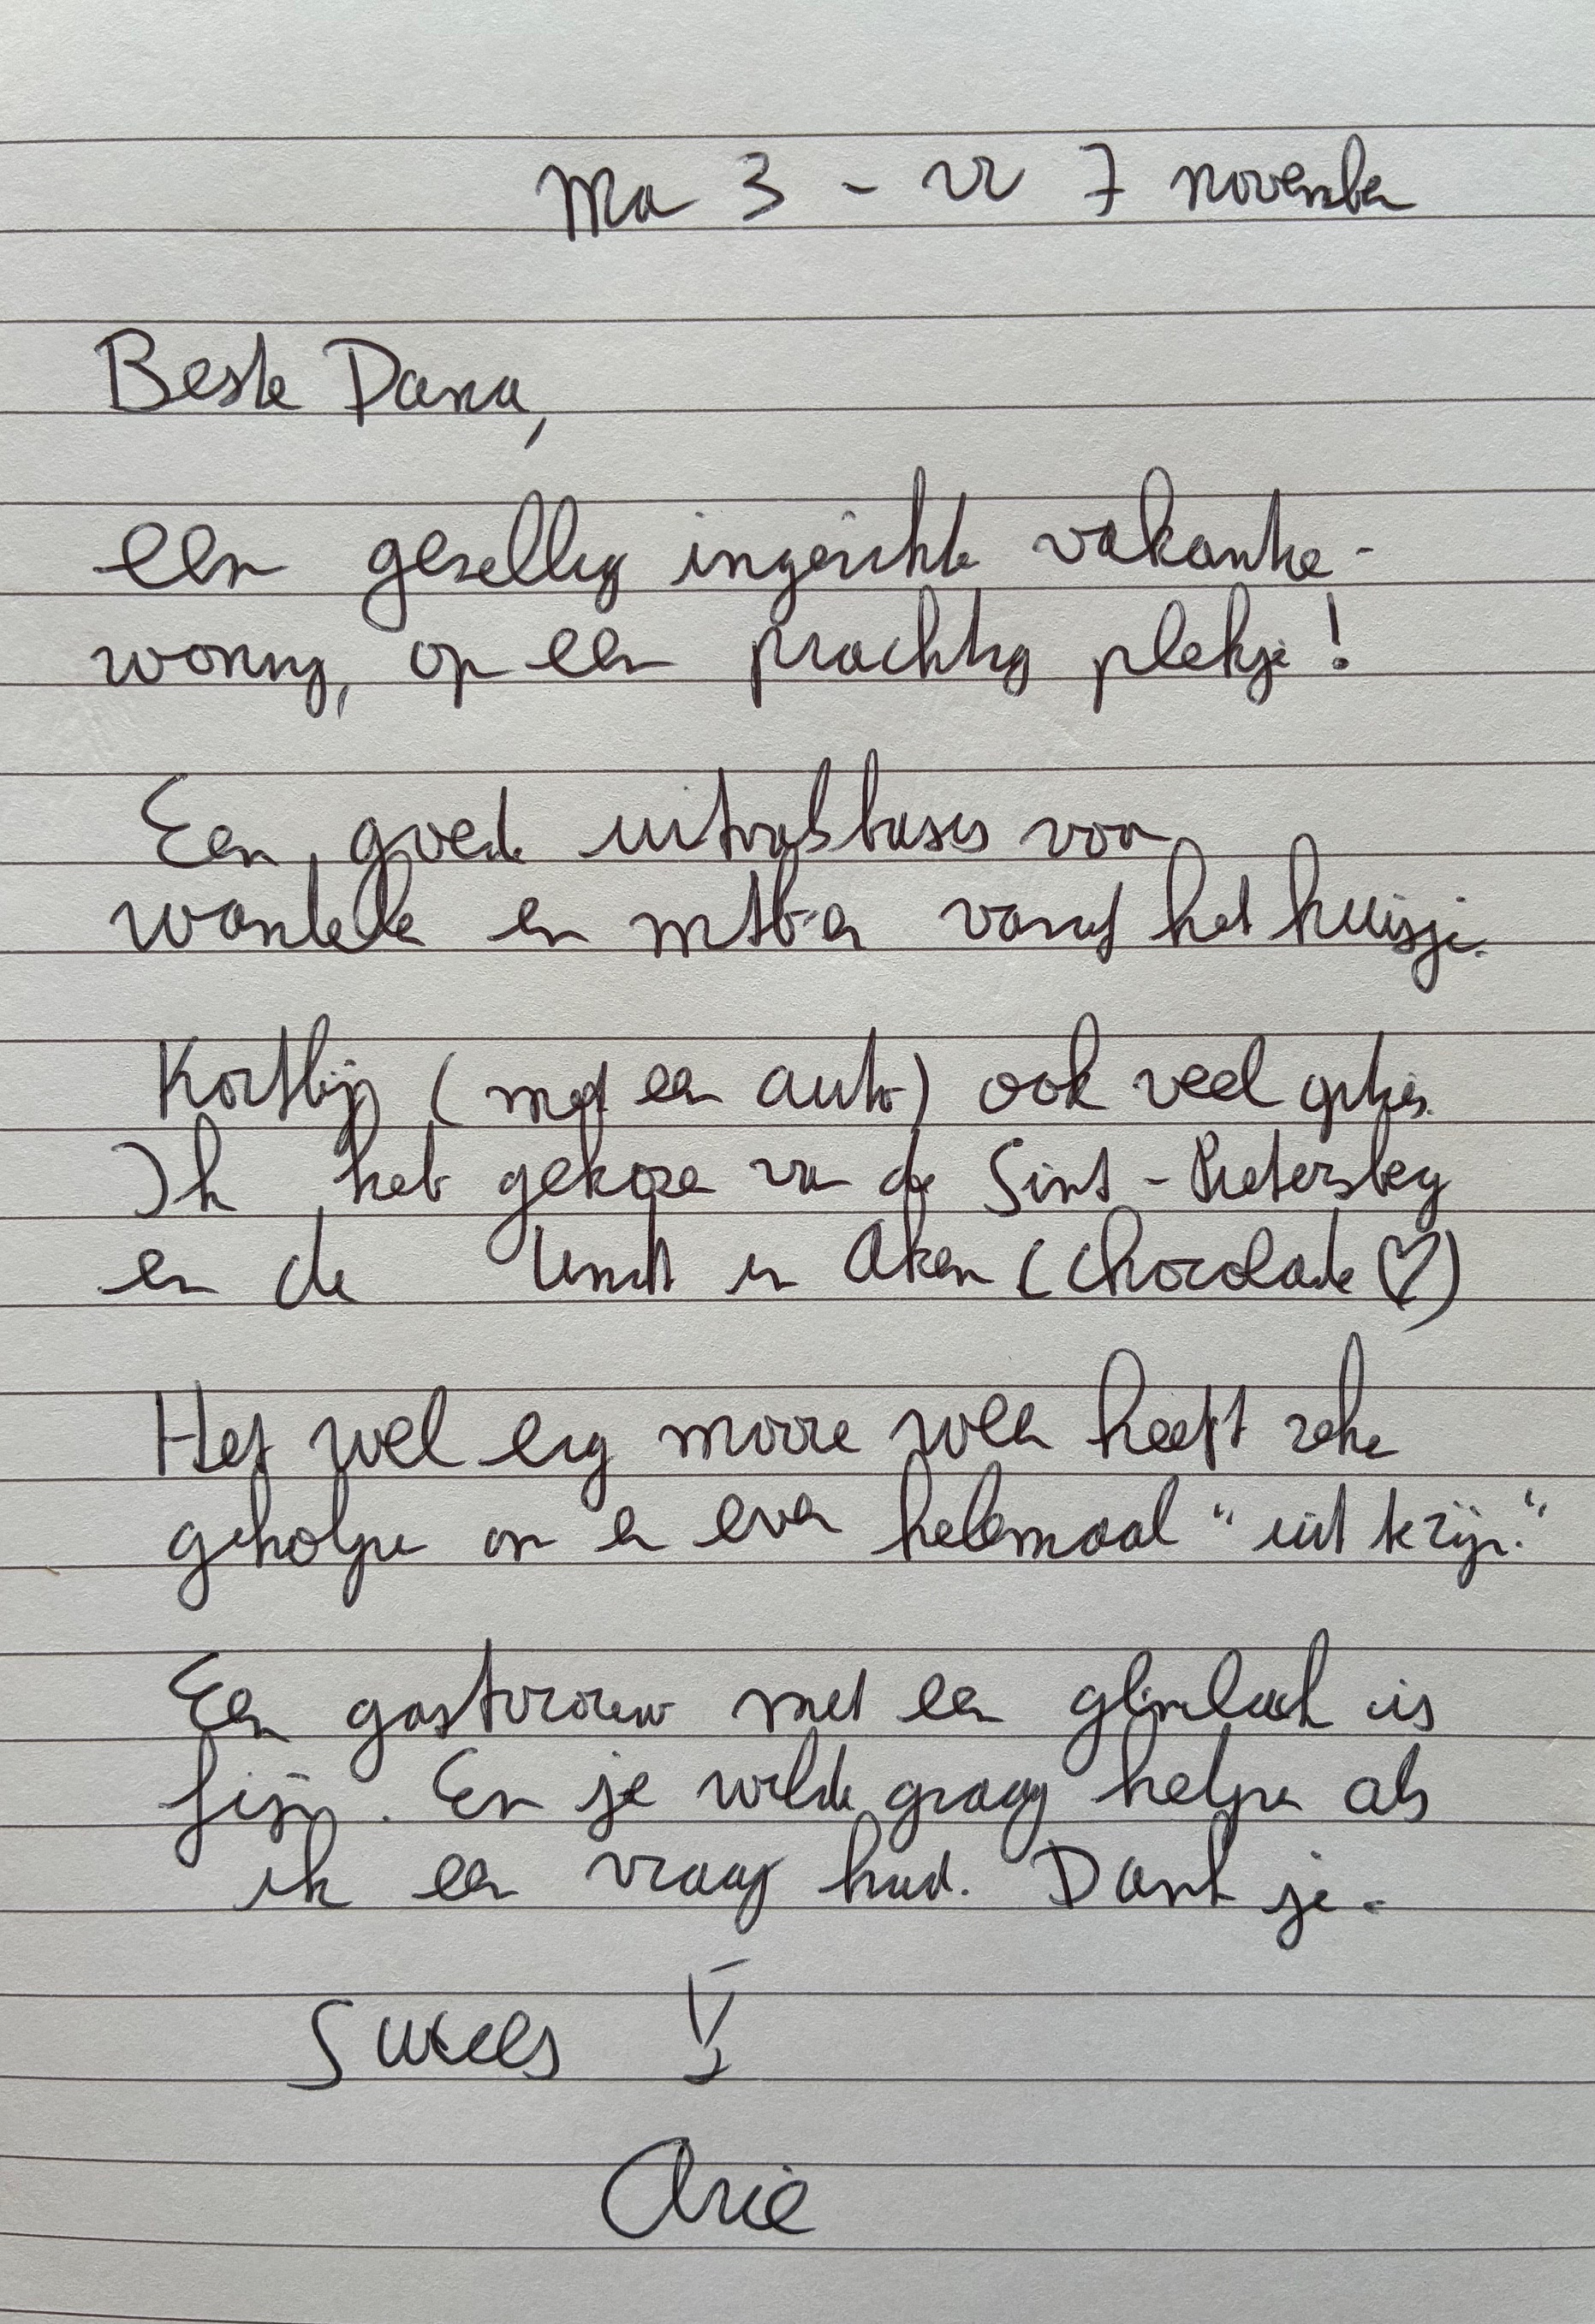 Ma 3 - vr 7 november
Beste Dana,
een gezellig ingerichte vakantie-
woning, op een prachtig plekje!
Een goede uitvalsbasis voor
wandelen en mtb-en vanaf het huisje.
Kortbij (met een auto) ook veel opties.
Ik heb gekozen voor de Sint-Pietersberg
en de Lindt in Aken (chocolade ♡)
Het wel erg mooie weer heeft zeker
geholpen om er even helemaal "uit te zijn."
Een gastvrouw met een glimlach is
fijn. En je wilde graag helpen als
ik een vraag had. Dank je.
Succes
Arie